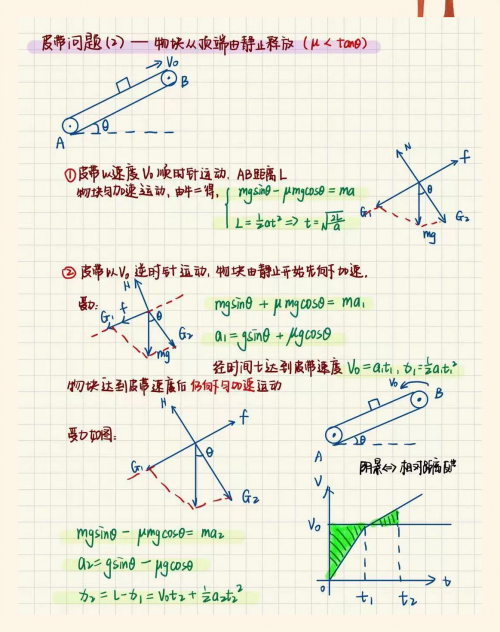 皮带问题(2) — 物块从顶端由静止释放 (μ < tanθ)
V₀
B
A
θ
① 皮带以速度 V₀ 顺时针运动, AB距离 L
物块匀加速运动, 由牛二得,
mgsinθ - μmgcosθ = ma
L = ½at² => t = √(2L/a)
N
f
θ
G₁
G₂
mg
② 皮带以 V₀ 逆时针运动, 物块由静止开始先向下加速.
受力:
N
f
G₁
θ
G₂
mg
mgsinθ + μmgcosθ = ma₁
a₁ = gsinθ + μgcosθ
经时间 t 达到皮带速度 V₀ = a₁t₁, s₁ = ½a₁t₁²
物块达到皮带速度后仍向下匀加速运动
V₀
B
A
θ
受力如图:
N
f
G₁
θ
G₂
阴景⇔相对距离
V
V₀
0
t₁
t₂
t
mgsinθ - μmgcosθ = ma₂
a₂ = gsinθ - μgcosθ
s₂ = L - s₁ = V₀t₂ + ½a₂t₂²